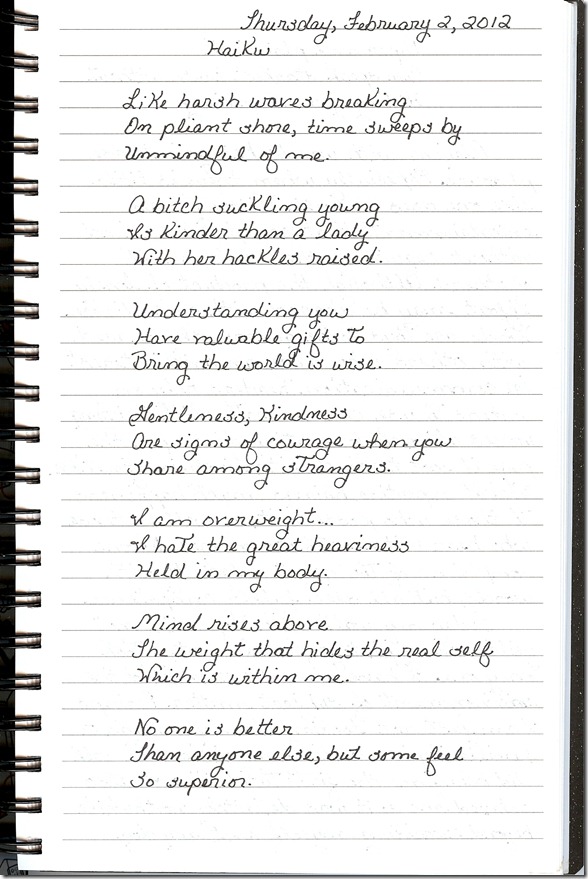 Thursday, February 2, 2012
Haiku
Like harsh waves breaking
On pliant shore, time sweeps by
Unmindful of me.
A bitch suckling young
Is kinder than a lady
With her hackles raised.
Understanding you
Have valuable gifts to
Bring the world is wise.
Gentleness, kindness
Are signs of courage when you
Share among strangers.
I am overweight...
I hate the great heaviness
Held in my body.
Mind rises above
The weight that hides the real self
Which is within me.
No one is better
Than anyone else, but some feel
So superior.